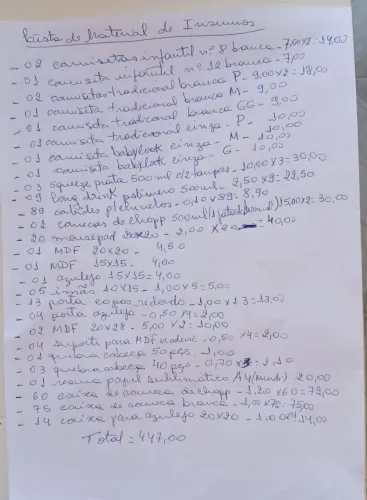 Lista de Material de Insumos
- 02 camisetas infantil nº 8 branca - 7,00x2=14,00
- 01 camiseta infantil nº 12 branca - 7,00
- 02 camisetas tradicional branca P - 9,00x2=18,00
- 01 camiseta tradicional branca M - 9,00
- 01 camiseta tradicional branca GG - 9,00
- 01 camiseta tradicional cinza - P - 10,00
- 01 camiseta babylook cinza - M - 10,00
- 01 camiseta babylook cinza - G - 10,00
- 03 squeeze prata 500 ml c/2 tampas - 10,00x3=30,00
- 09 long drink polímero 500ml - 2,50x9=22,50
- 89 cabides p/chinelos - 0,10x89=8,90
- 02 canecas de chopp 500ml 15,00x2=30,00
- 20 mousepad 20x20 - 2,00 - 40,00
- 01 MDF 20x20 - 4,50
- 01 MDF 15x15 - 4,00
- 01 azulejo 15x15=4,00
- 05 imãs 10x15 - 1,00x5=5,00
- 13 porta copos redondo - 1,00x13=13,00
- 04 porta azulejo - 0,50x4=2,00
- 02 MDF 20x28 - 5,00x2=10,00
- 04 suporte para MDF - 0,50x4=2,00
- 01 quebra cabeça 50 pçs - 1,00
- 03 quebra cabeça 40 pço - 0,70x3=2,10
- 01 resma papel sublimático A4 - 20,00
- 60 caixa de caneca de chopp - 1,20x60=72,00
- 75 caixa de caneca branca - 1,00x75=75,00
- 14 caixa para azulejo 20x20 - 1,00x14=14,00
Total=447,00